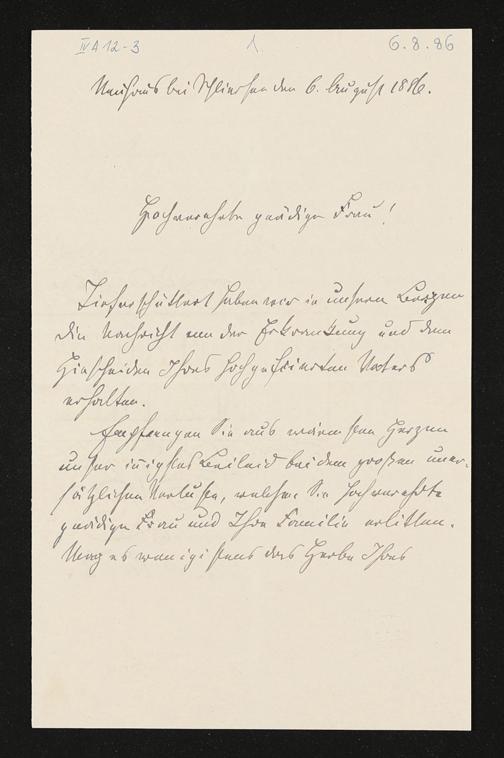 IV A 12-3
1.
6.8.86
Neuhaus bei Schliersee den 6. August 1886.
Hochverehrte gnädige Frau!
Tieferschüttert haben wir in unsern Bergen
die Nachricht von der Erkrankung und dem
Hinscheiden Ihres hochgefeierten Vaters
erhalten.
Empfangen Sie aus wärmsten Herzen
unser innigstes Beileid bei dem großen uner-
sätzlichen Verluste, welchen Sie hochverehrte
gnädige Frau und Ihre Familie erlitten.
Mag es wenigstens das Herbe Ihres